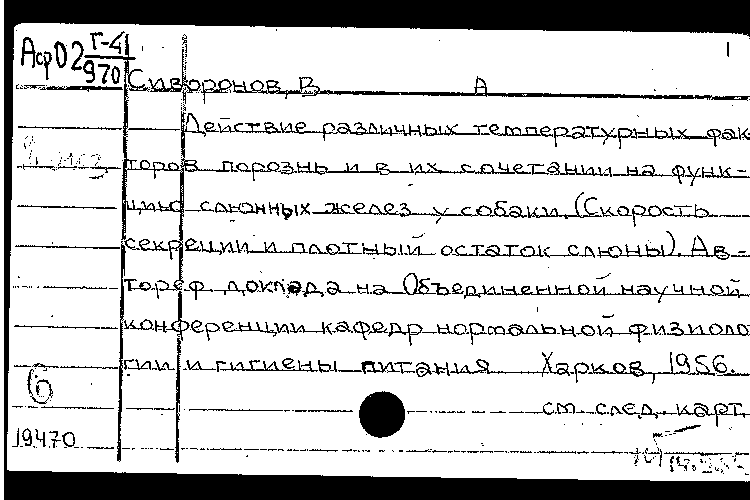 Аср02 Г-4
970
Сиворонов, В А
Действие различных температурных фак
торов порознь и в их сочетании на функ-
цию слюнных желез у собаки. (Скорость
секреции и плотный остаток слюны). Ав-
тореф. доклада на Объединенной научной
конференции кафедр нормальной физиоло
гии и гигиены питания Харков, 1956.
6
см. след. карт.
19470